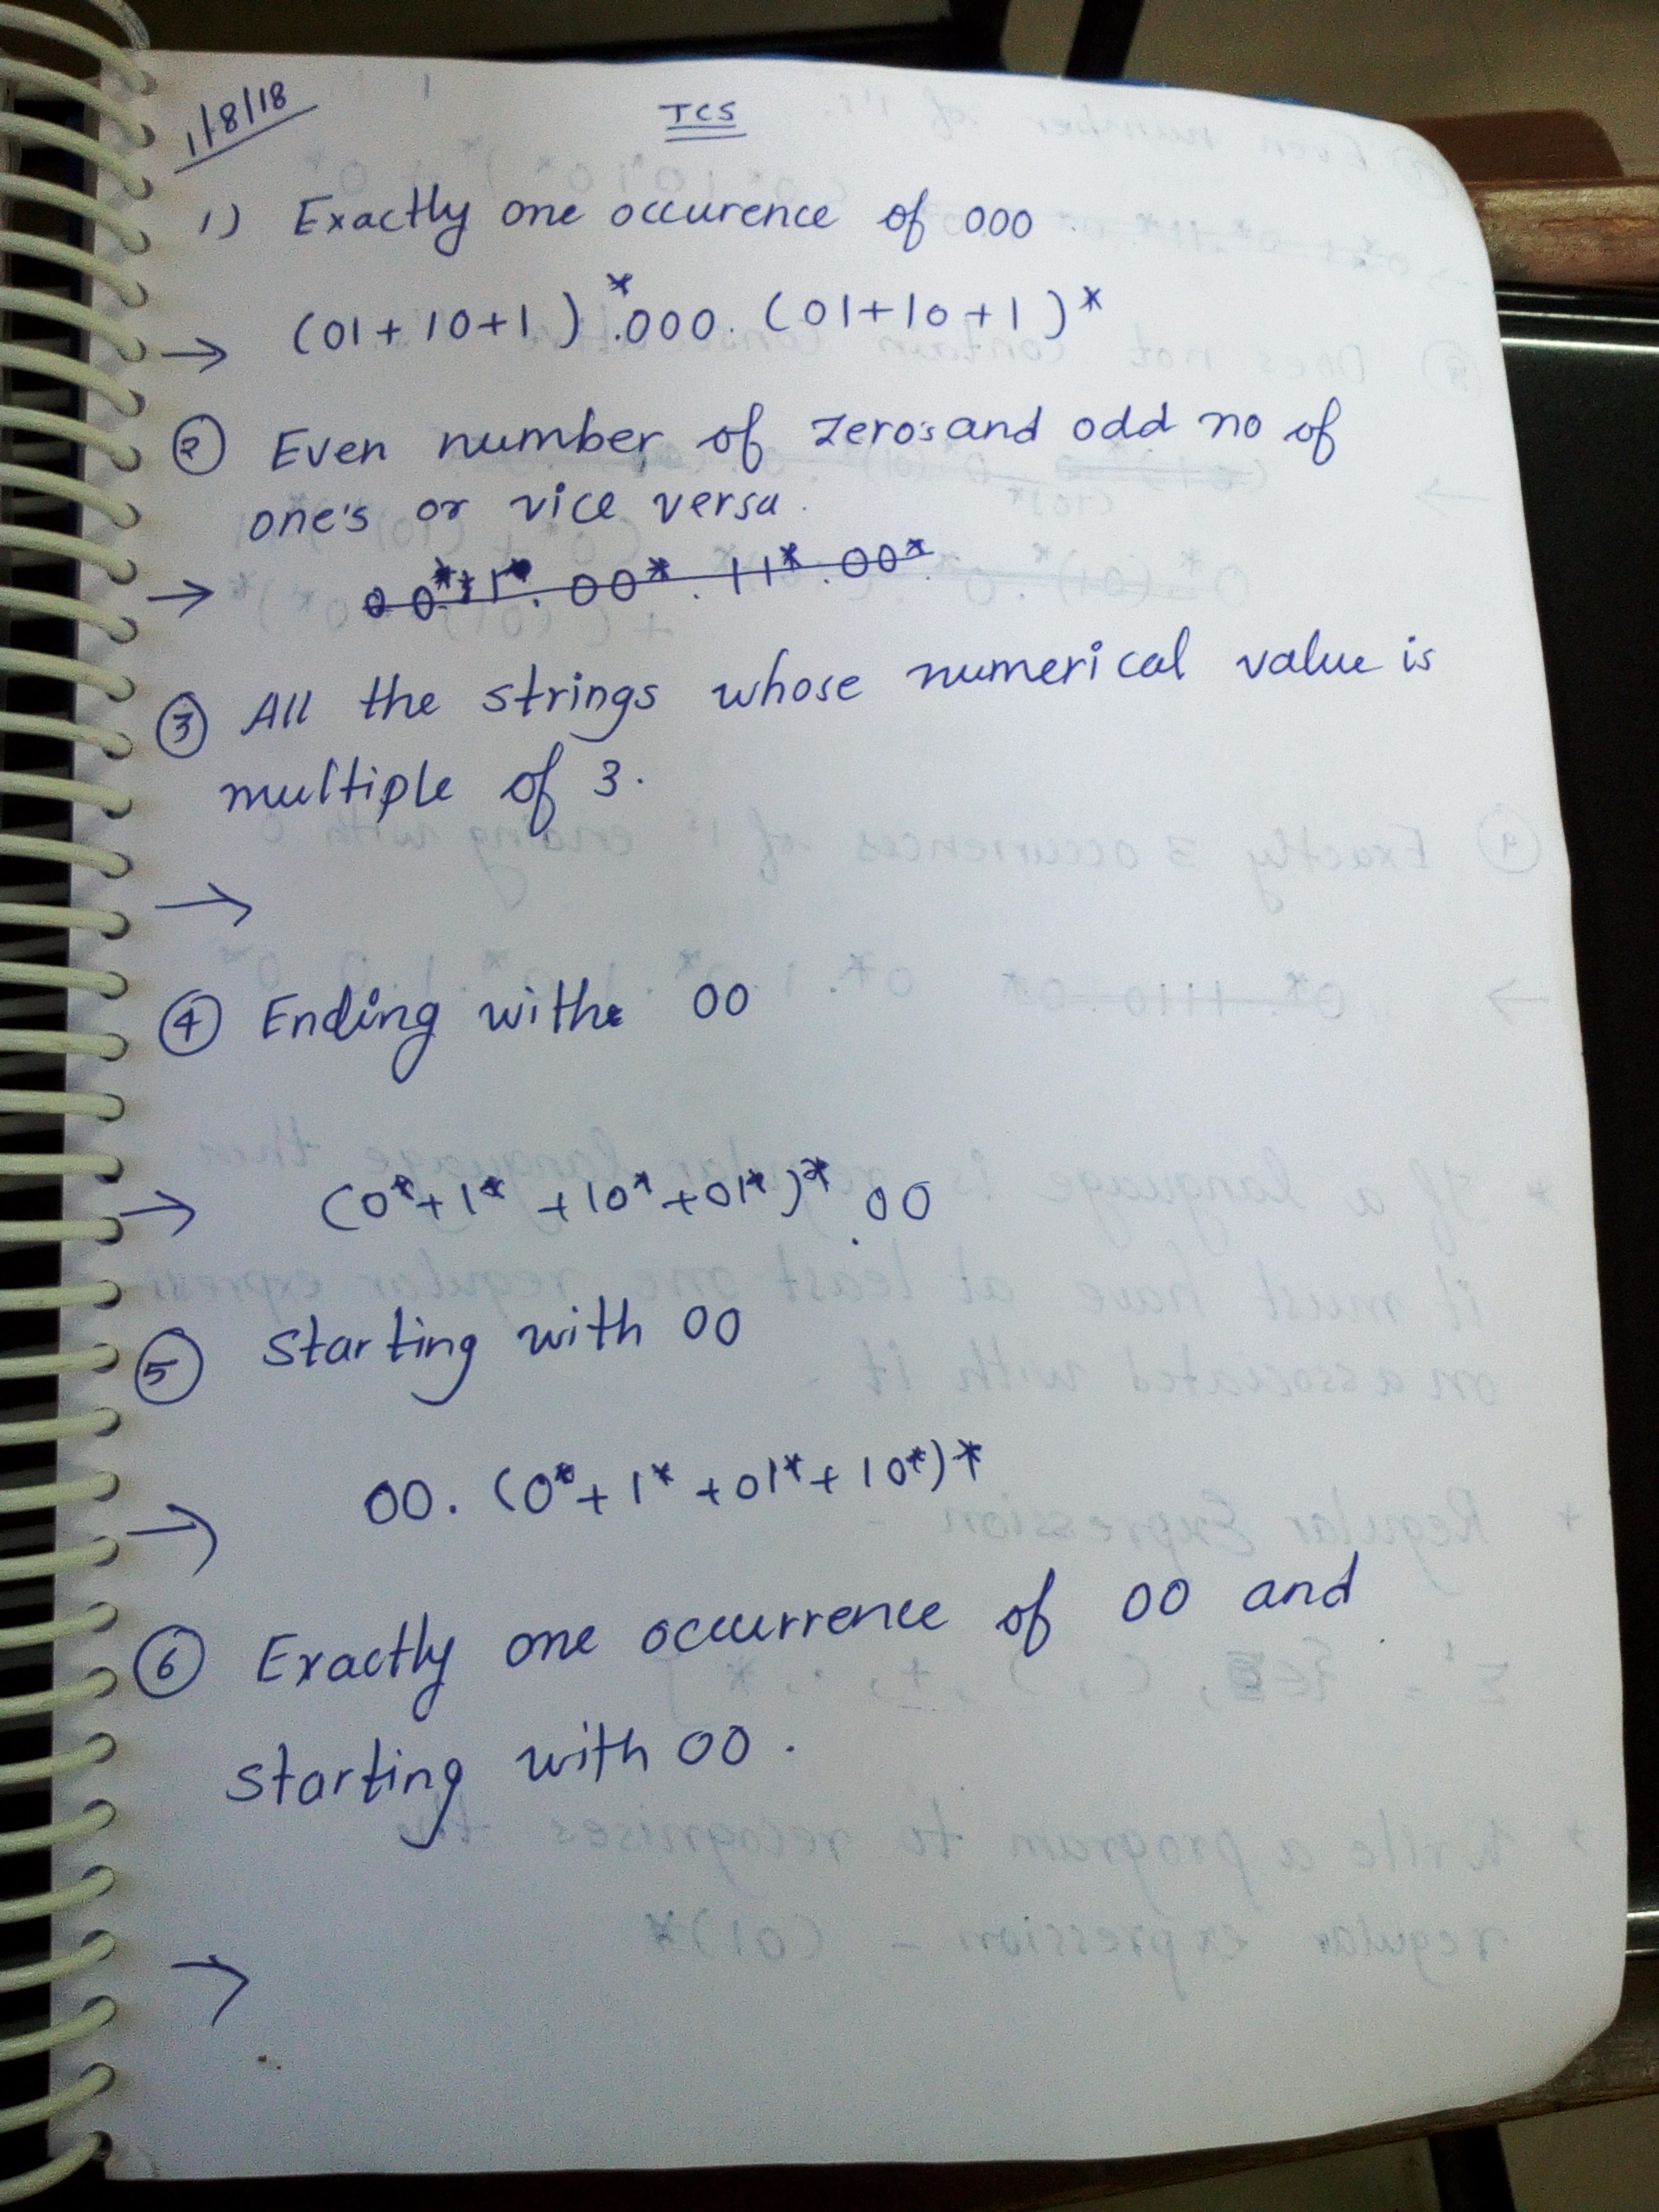 1/8/18
TCS
1) Exactly one occurence of 000.
→ (01+10+1)*.000.(01+10+1)*
② Even number of zero's and odd no of
one's or vice versa.
→ 00* 11*. 00*. 11*. 00*.
③ All the strings whose numerical value is
multiple of 3.
→
④ Ending withe 00
→ (0*+1*+10*+01*)*.00
⑤ Starting with 00
→ 00.(0*+1*+01*+10*)*
⑥ Exactly one occurrence of 00 and
starting with 00.
→